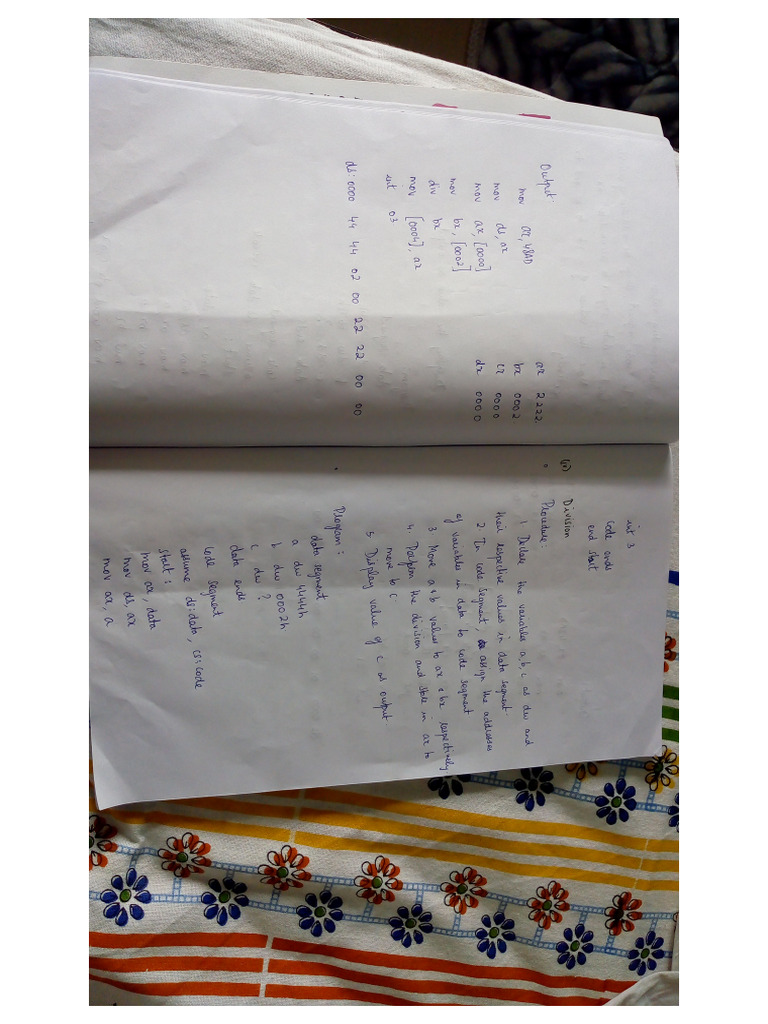 Output:
mov ax, 48AD
mov ds, ax
mov ax, [0000]
mov bx, [0002]
div bx
mov [0004], ax
int 03
ax 2222
bx 0002
cx 0000
dx 0000
ds: 0000 44 44 02 00 22 22 00 00
int 3
code ends
end start
(iv) Division
Procedure:
1. Declare the variables a, b, c as dw and
their respective values in data segment.
2. In code segment, assign the addresses
of variables in data to code segment
3. Move a & b values to ax & bx respectively
4. Perform the division and store in ax to
move to c
5. Display value of c as output.
Program:
data segment
a dw 4444h
b dw 0002h
c dw ?
data ends
code segment
assume ds:data, cs:code
start:
mov ax, data
mov ds, ax
mov ax, a